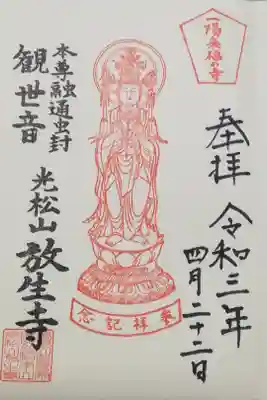 一陽来福の寺
奉拝
令和三年
四月二十二日
本尊融通虫封
観世音
光松山
放生寺
奉拝記念